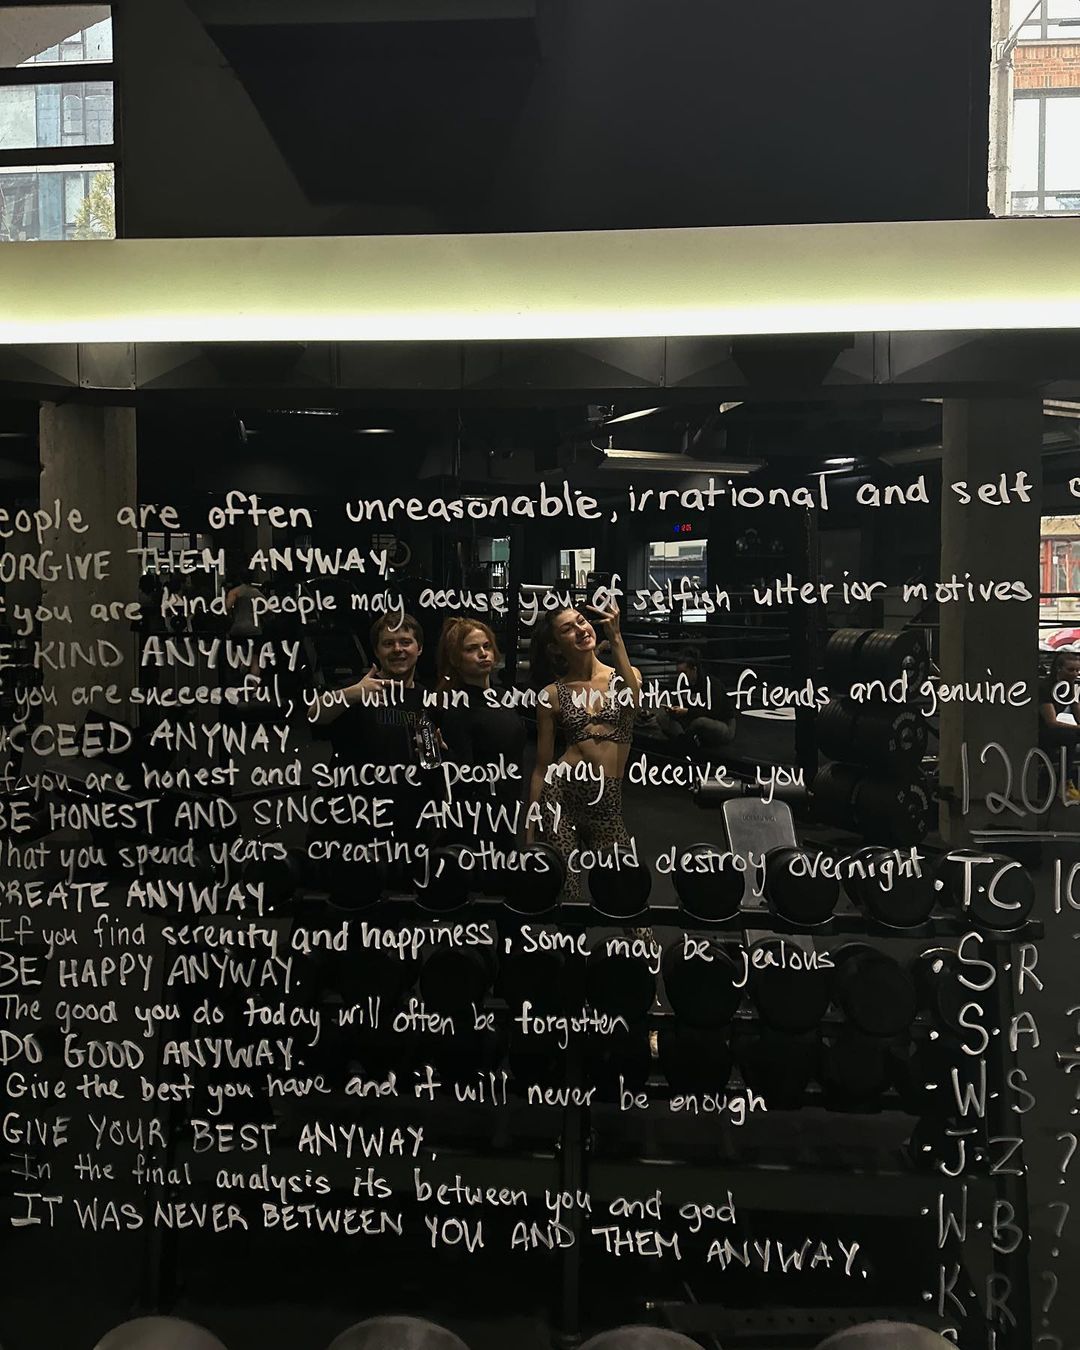 eople are often unreasonable, irrational and self c
ORGIVE THEM ANYWAY.
f you are kind people may accuse you of selfish ulterior motives
E KIND ANYWAY.
f you are successful, you will win some unfaithful friends and genuine en
UCCEED ANYWAY.
If you are honest and sincere people may deceive you
BE HONEST AND SINCERE ANYWAY.
What you spend years creating, others could destroy overnight.
CREATE ANYWAY.
If you find serenity and happiness, some may be jealous
BE HAPPY ANYWAY.
The good you do today will often be forgotten
DO GOOD ANYWAY.
Give the best you have and it will never be enough
GIVE YOUR BEST ANYWAY.
In the final analysis its between you and god
IT WAS NEVER BETWEEN YOU AND THEM ANYWAY.
120
• T.C 10
• S.R
• S.A
- W.S ?
• J.Z. ?
• W.B. ?
• K.R ?